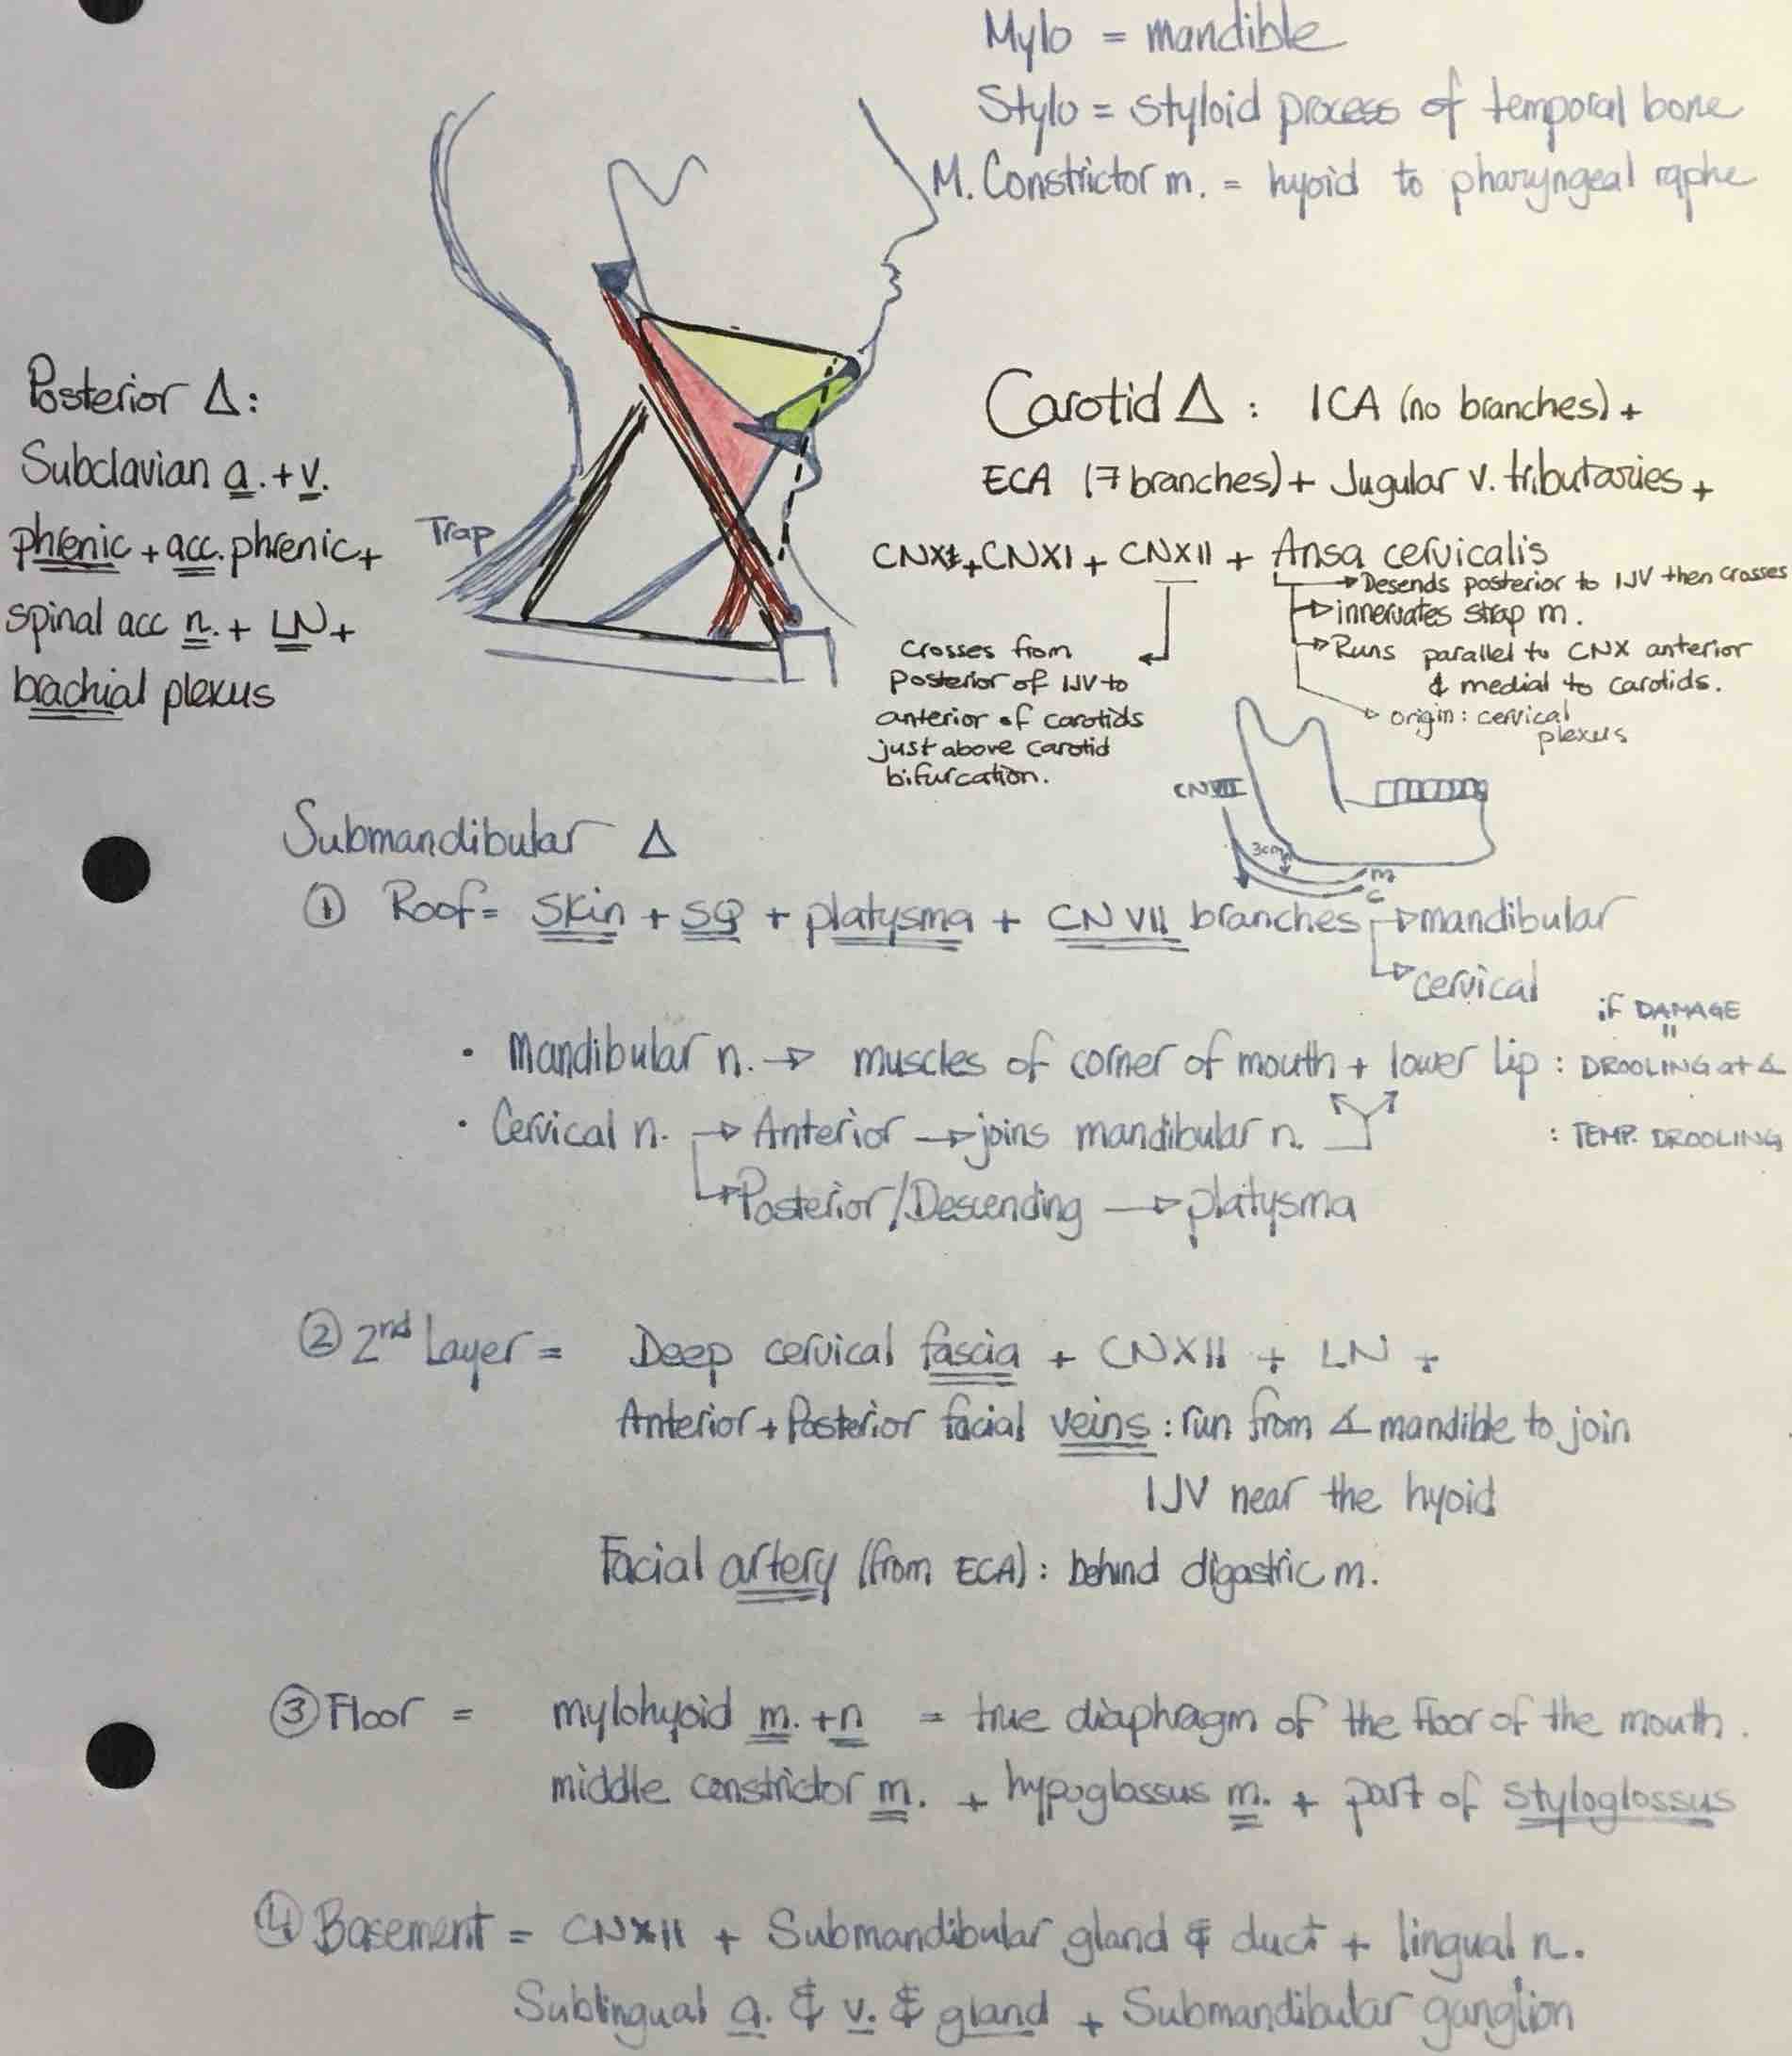 Mylo = mandible
Stylo = styloid process of temporal bone
M. Constrictor m. = hyoid to pharyngeal raphe
Posterior Δ:
Subclavian a. + v.
phrenic + acc. phrenic +
spinal acc n. + LN +
brachial plexus
Trap
Carotid Δ : ICA (no branches) +
ECA (7 branches) + Jugular v. tributaries +
+ CNXI + CNXII + Ansa cervicalis
Desends posterior to IJV then crosses
innervates strap m.
Runs parallel to CNX anterior
& medial to carotids.
origin: cervical
plexus
Crosses from
posterior of IJV to
anterior of carotids
just above carotid
bifurcation.
CNVII
3cm
m
c
Submandibular Δ
① Roof = skin + SQ + platysma + CN VII branches → mandibular
→ cervical
if DAMAGE
=
• Mandibular n. → muscles of corner of mouth + lower lip : DROOLING at ∡
• Cervical n. → Anterior → joins mandibular n. : TEMP. DROOLING
→ Posterior/Descending → platysma
② 2nd Layer = Deep cervical fascia + CNXII + LN +
Anterior + Posterior facial veins : run from ∡ mandible to join
IJV near the hyoid
Facial artery (from ECA) : behind digastric m.
③ Floor = mylohyoid m. + n = true diaphragm of the floor of the mouth.
middle constrictor m. + hypoglossus m. + part of styloglossus
④ Basement = CNXII + Submandibular gland & duct + lingual n.
Sublingual a. & v. & gland + Submandibular ganglion